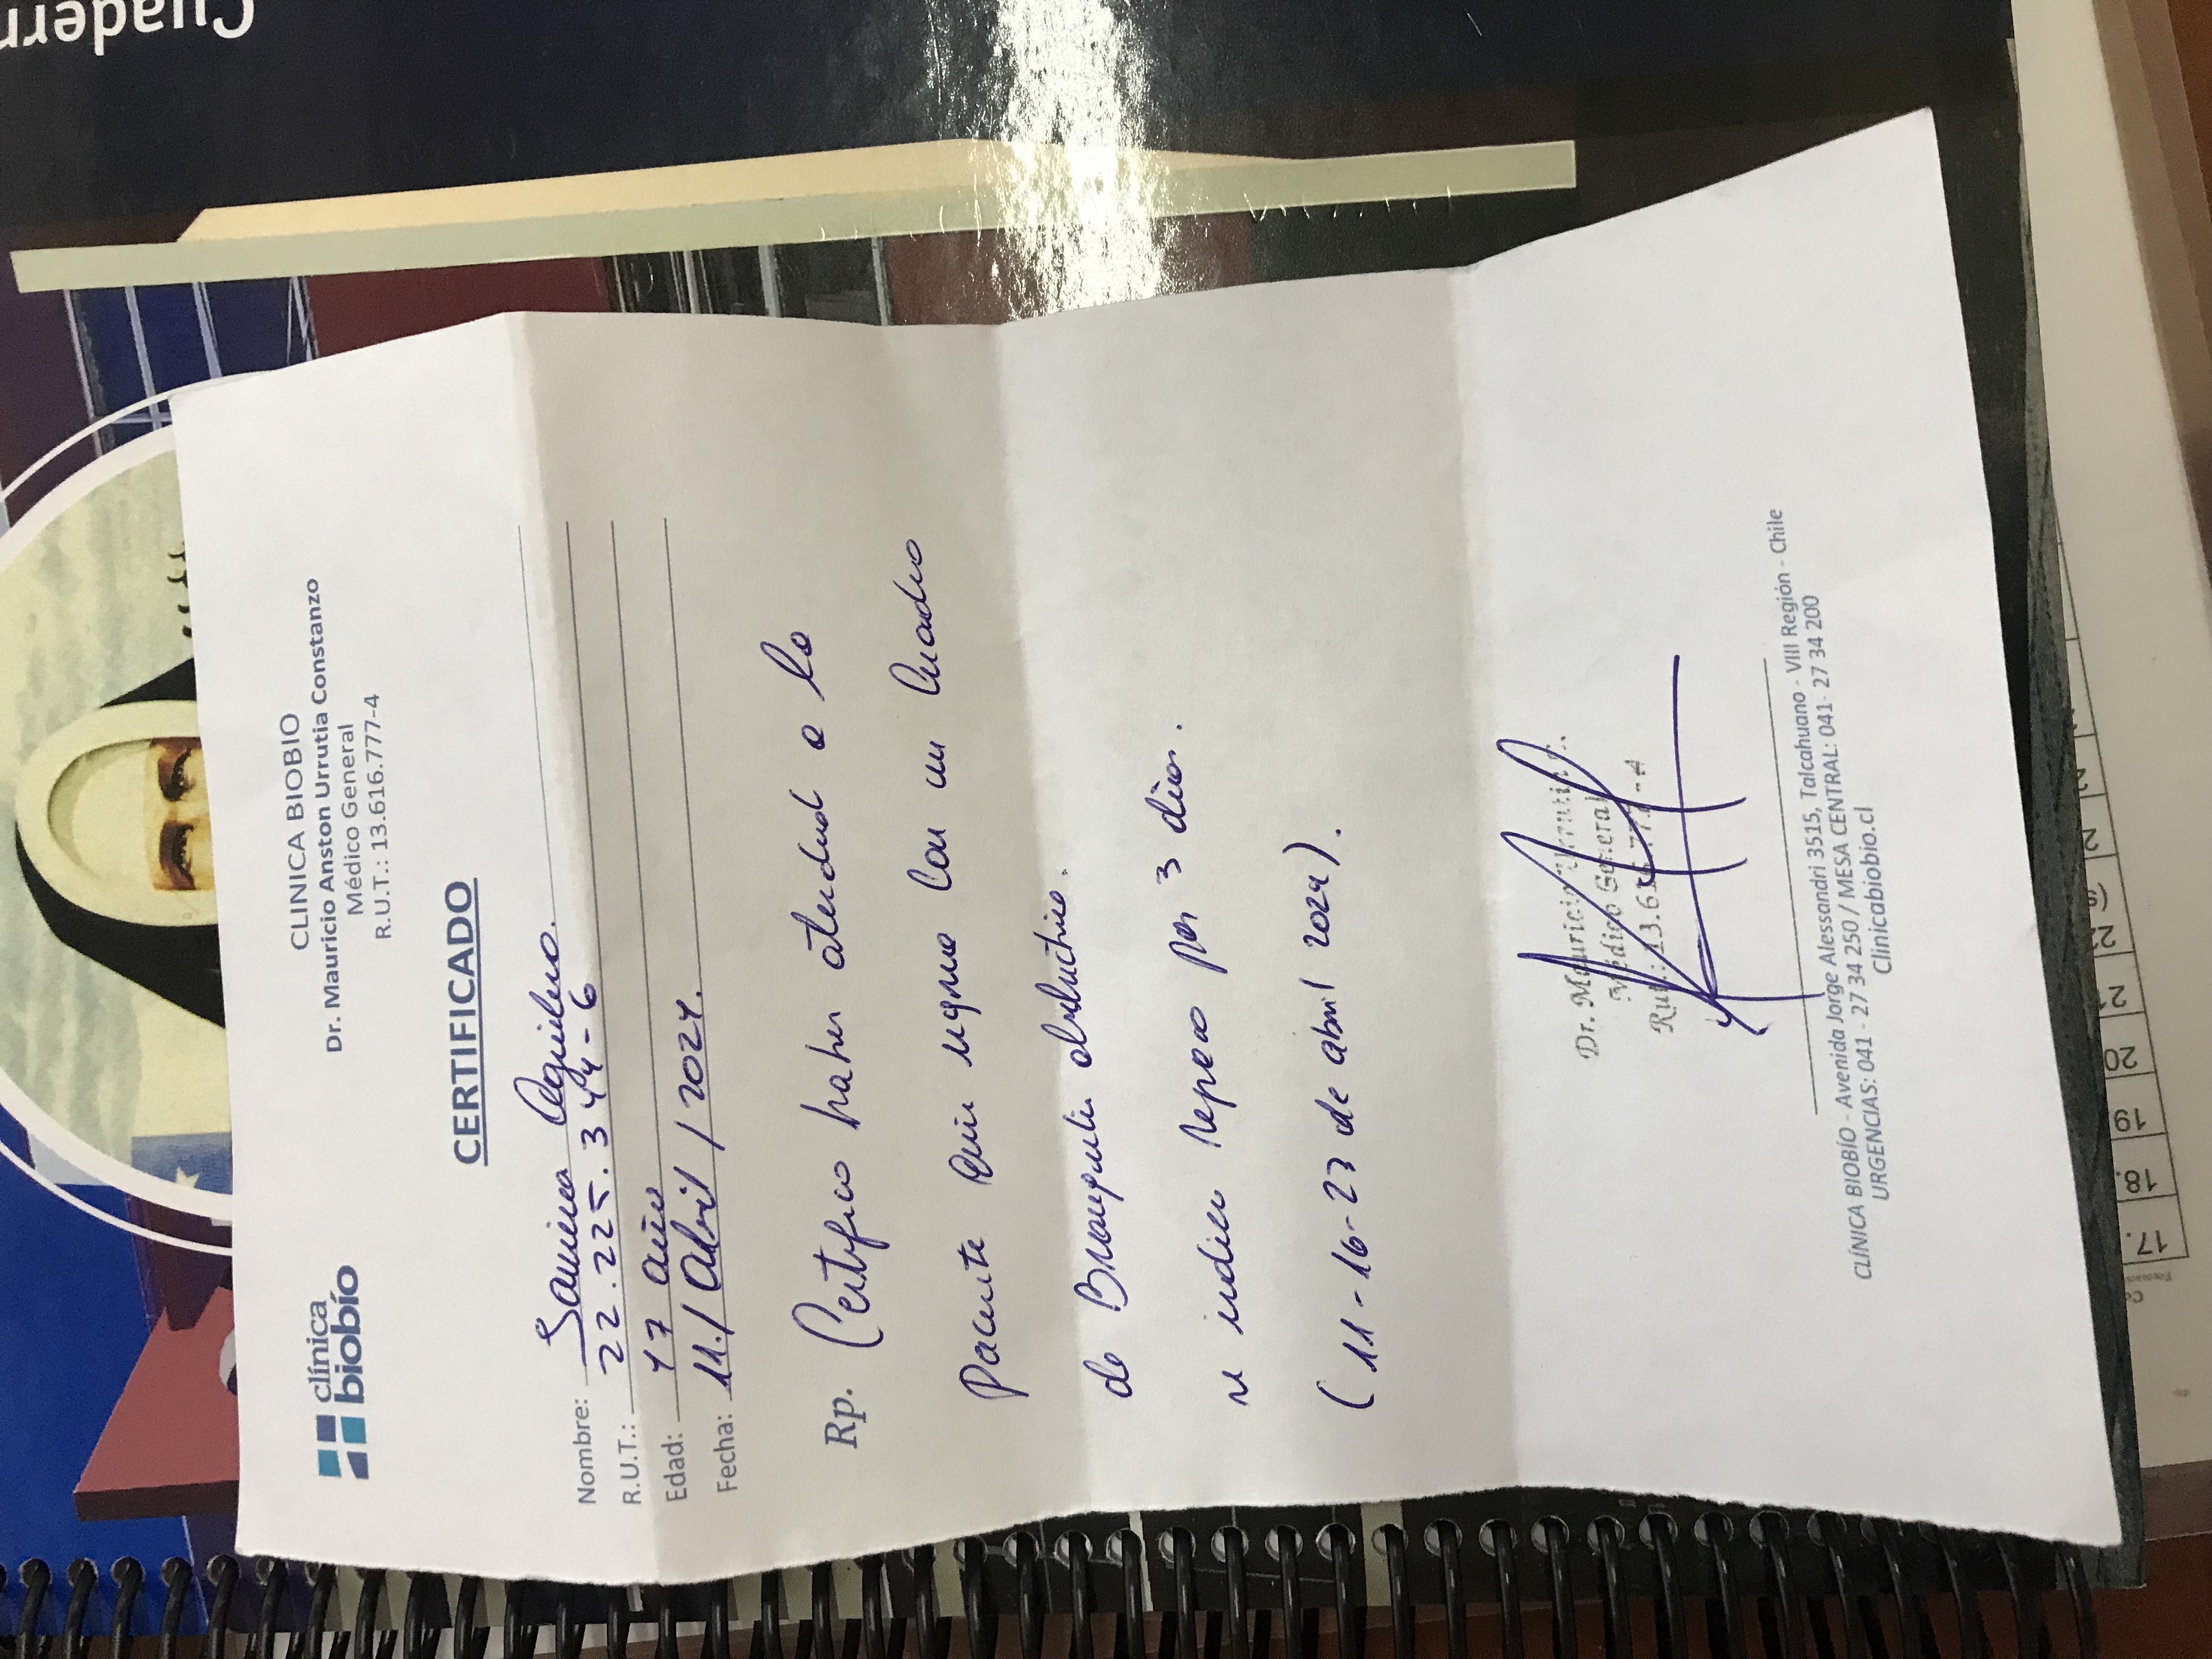 Cuadern
clínica
biobío
CLINICA BIOBIO
Dr. Mauricio Anston Urrutia Constanzo
Médico General
R.U.T.: 13.616.777-4
CERTIFICADO
Nombre: Aguilera.
R.U.T.: 22.225.344-6
Edad: 17 años
Fecha: 11/Abril/2024.
Rp. Certifico haber atendido a la
Paciente quien ingresa con un cuadro
de Bronquitis obstructiva.
se indica reposo por 3 días.
(11-16-23 de abril 2024).
Dr. Mauricio Urrutia
Médico General
Rut: 13.616.777-4
CLÍNICA BIOBÍO - Avenida Jorge Alessandri 3515, Talcahuano - VIII Región - Chile
URGENCIAS: 041 - 27 34 250 / MESA CENTRAL: 041- 27 34 200
Clinicabiobio.cl
17.
18.
19
20